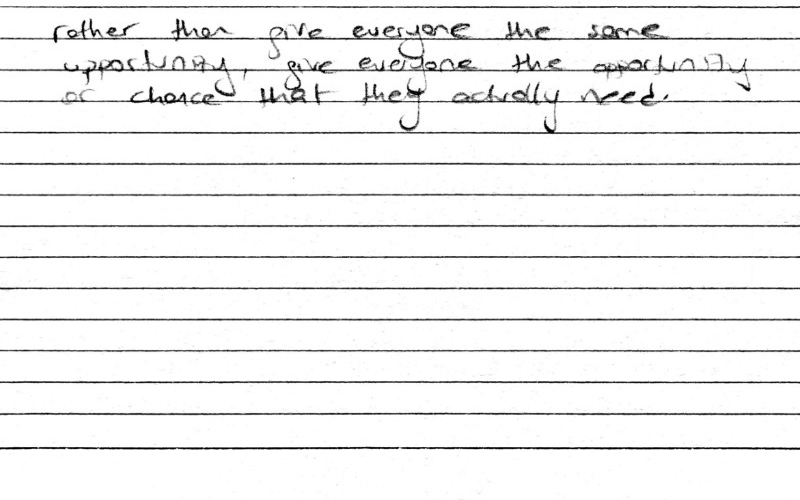 rather than give everyone the same
upportunity, give everyone the opportunity
or chance that they actually need.